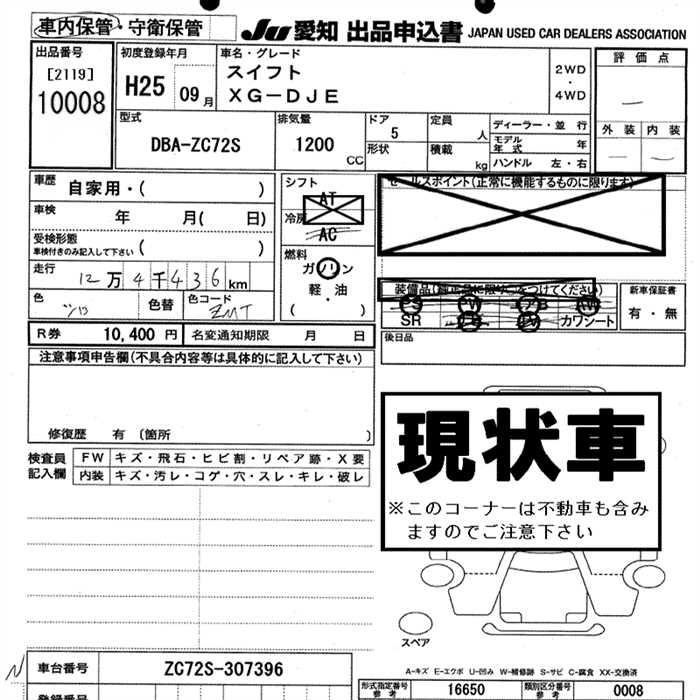 車内保管・守衛保管
JU 愛知 出品申込書 JAPAN USED CAR DEALERS ASSOCIATION
出品番号
[2119]
10008
初度登録年月
H25 09月
車名・グレード
スイフト
XG-DJE
2WD
・
4WD
評価点
外装 内装
型式
DBA-ZC72S
排気量
1200
CC
ドア
5
形状
定員
人
積載
kg
ディーラー・並行
モデル年式 年
ハンドル 左・右
車歴 自家用・( )
車検 年 月( 日)
受検形態
車検付きのみ記入して下さい ( )
走行 12万4千436km
色 色替 色コード
ZMT
シフト
AT
冷房
AC
燃料
ガソリン
・
軽・油
( )
セールスポイント(正常に機能するものに限ります)
装備品(純正品に限り○をつけてください)
PS PW AB AW
SR カワシート
新車保証書
有・無
R券 10,400円 名変通知期限 月 日
後日品
注意事項申告欄(不具合内容等は具体的に記入して下さい)
修復歴 有 (箇所 )
検査員記入欄
FW キズ・飛石・ヒビ割・リペア跡・X要
内装 キズ・汚レ・コゲ・穴・スレ・キレ・破レ
現状車
※このコーナーは不動車も含み
ますのでご注意下さい
スペア
A-キズ E-エクボ U-凹み W-補修跡 S-サビ C-腐食 XX-交換済
車台番号 ZC72S-307396
形式指定番号 参考 16650 類別区分番号 参考 0008
登録番号